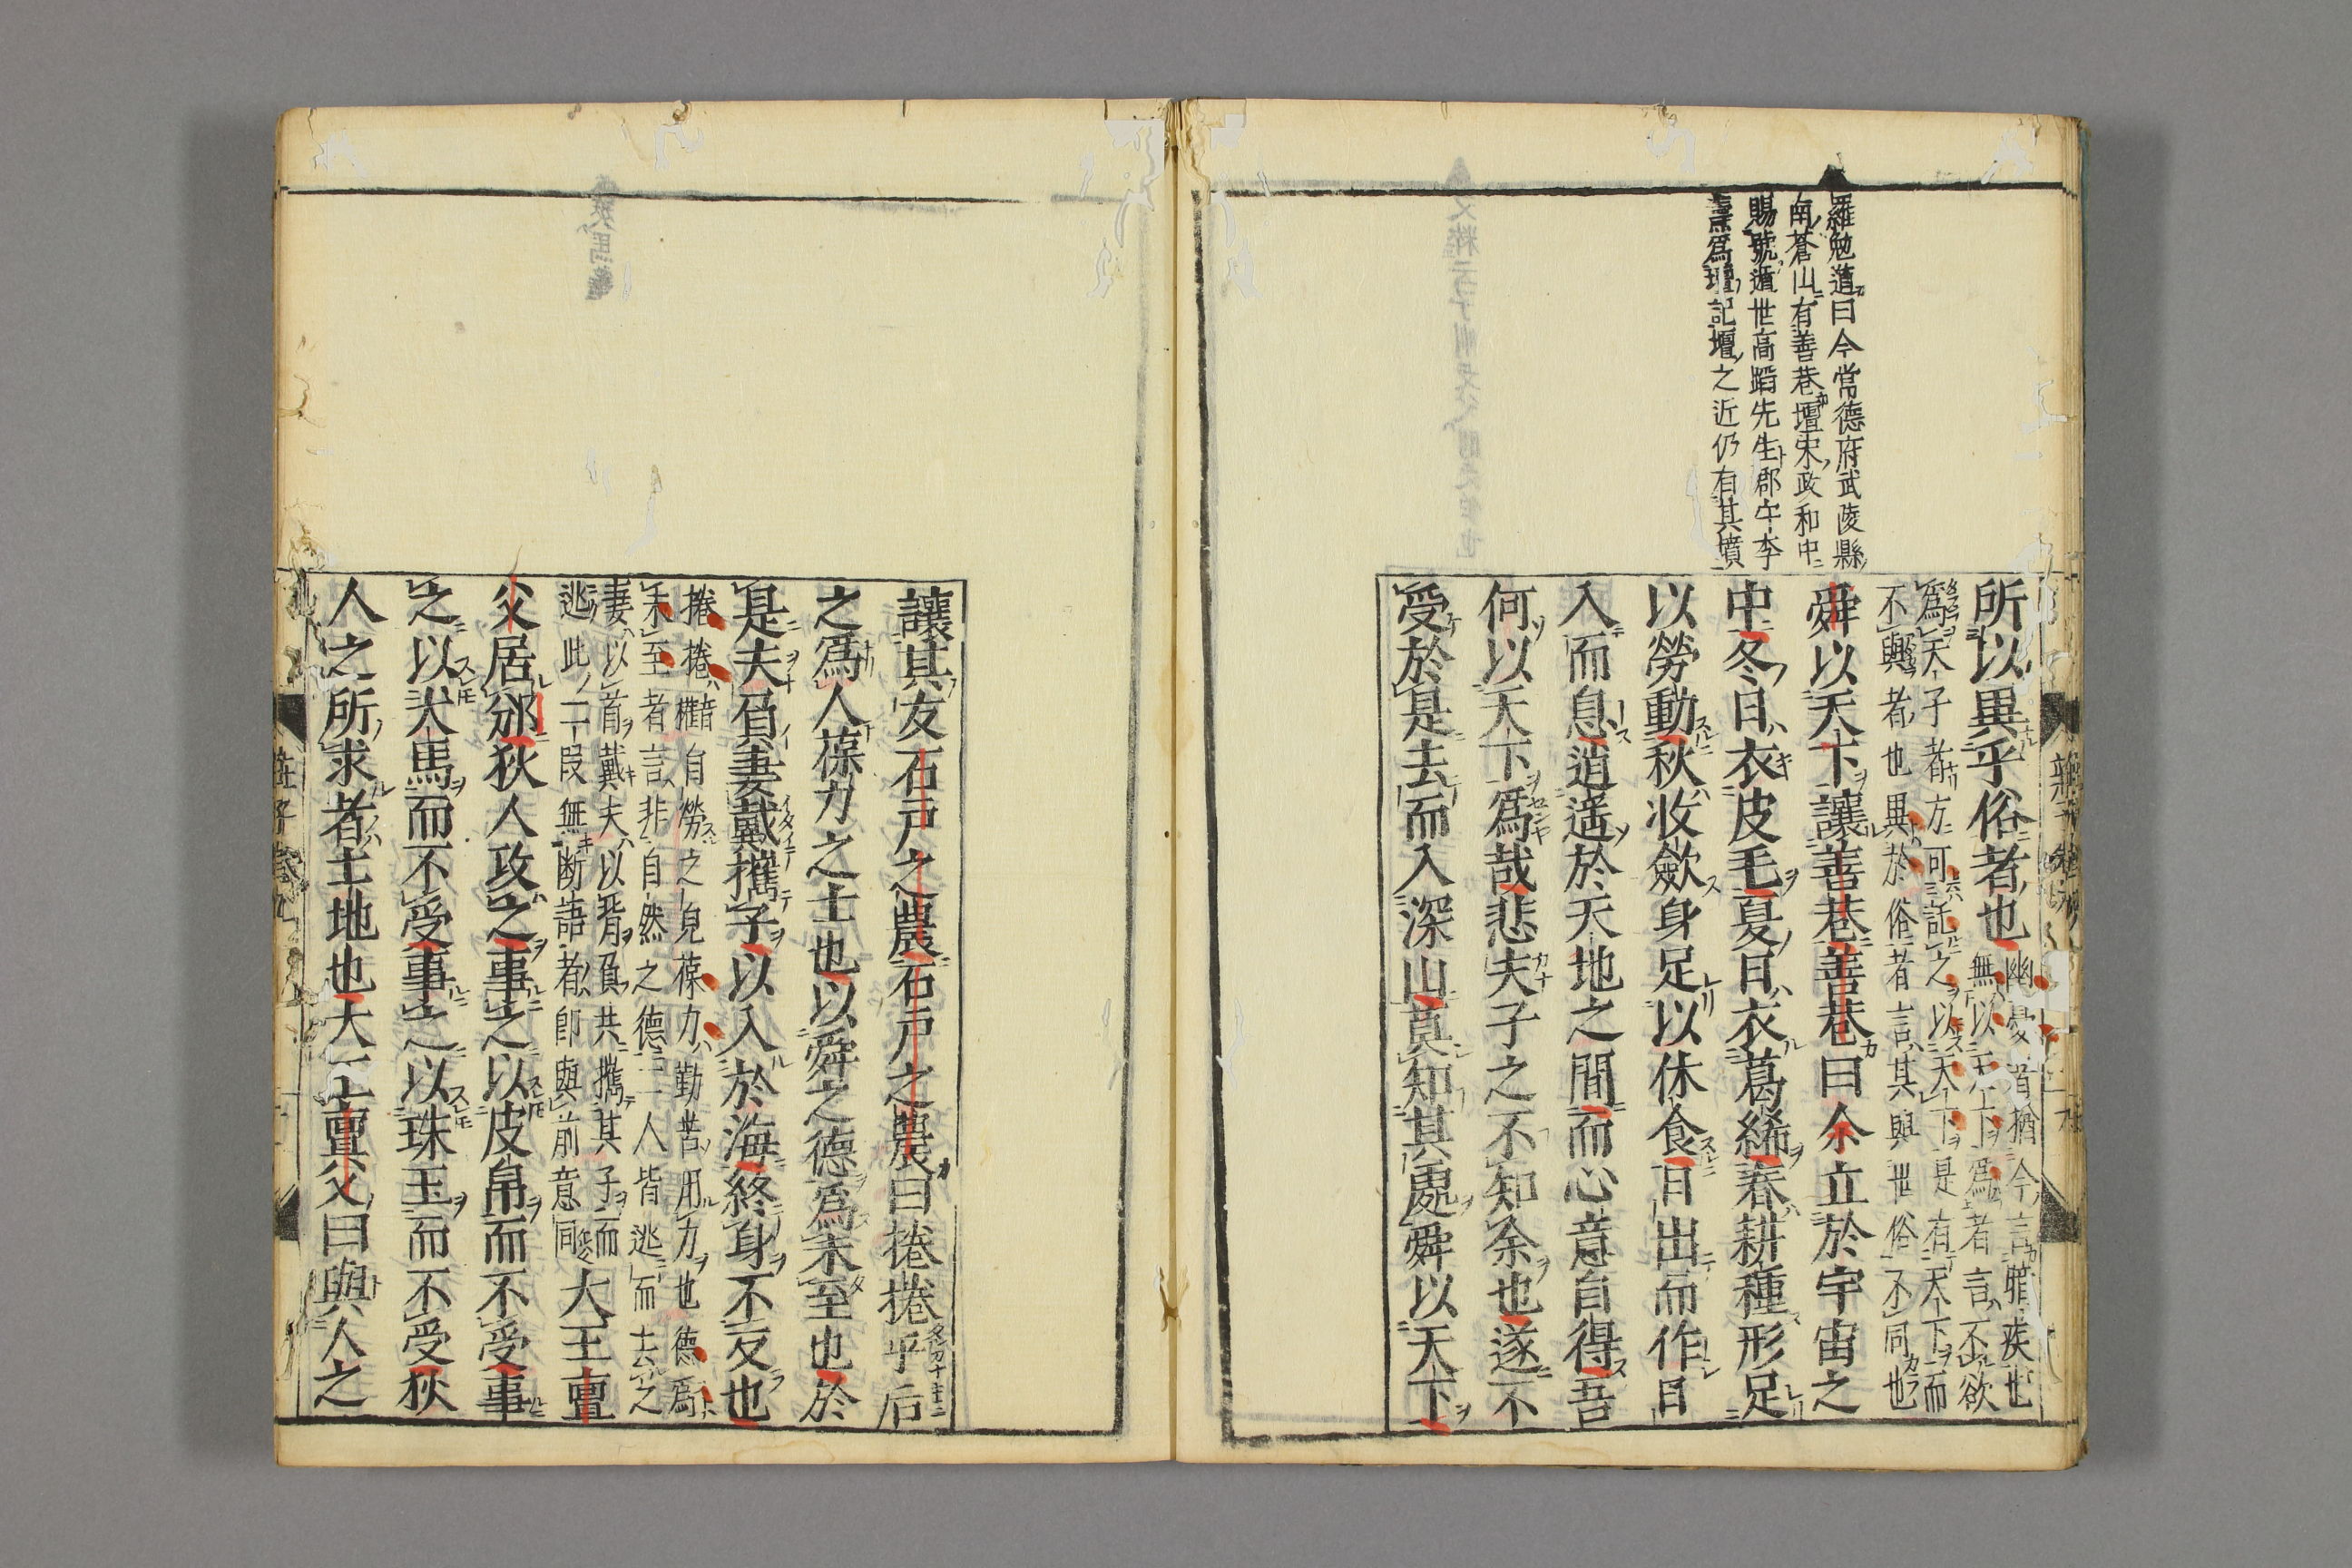 羅勉道曰今常德府武陵縣
南蒼山有善巷壇宋政和中
賜號遁世高蹈先生郡守李
燾爲壇記壇之近仍有其墳
所以異乎俗者也
幽憂之猶今言
疾也
無以天下爲者言不欲
爲天子者方可託之以天下是有天下而
不與者也異於俗者言其與世俗不同也
舜以天下讓善巷善巷曰余立於宇宙之
中冬日衣皮毛夏日衣葛絺春耕種形足
以勞動秋收歛身足以休食日出而作日
入而息逍遥於天地之間而心意自得吾
何以天下爲哉悲夫子之不知余也遂不
受於是去而入深山莫知其處舜以天下
讓其友石戶之農石戶之農曰捲捲乎后
之爲人葆力之士也以舜之德爲未至也於
是夫負妻戴攜子以入於海終身不反也
捲捲音權自勞之皃葆力勤苦用力也德爲
未至者言非自然之德二人皆逃而去之
妻以首戴夫以背負共攜其子而
逃此二段無断語者即與前意同
大王亶
父居邠狄人攻之事之以皮帛而不受事
之以犬馬而不受事之以珠玉而不受狄
人之所求者土地也大王亶父曰與人之